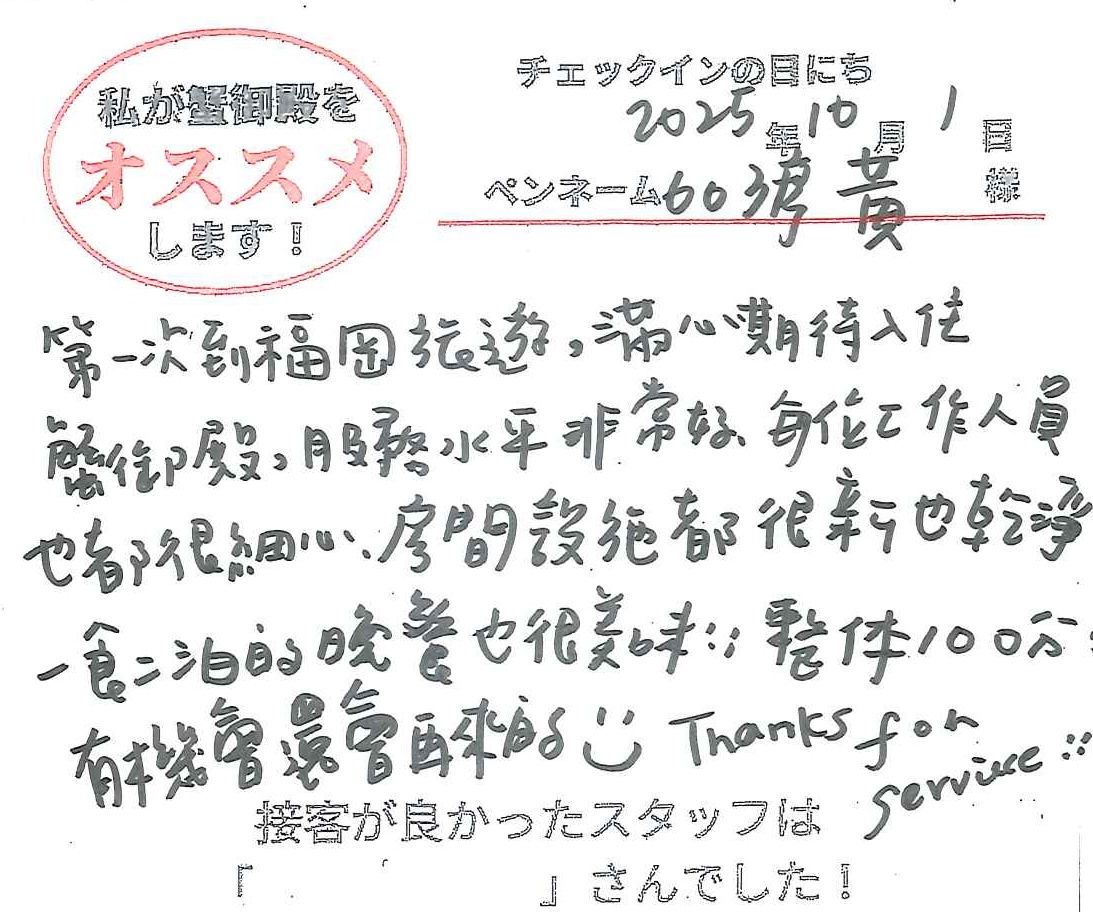 私が蟹御殿を
オススメ
します！
チェックインの日にち
2025年10月1日
ペンネーム603號 黃 様
第一次到福岡旅遊，滿心期待入住
蟹御殿，服務水平非常好、每位工作人員
也都很細心、房間設施都很新也乾淨
一食二泊的晚餐也很美味!! 整体100分!
有機會還會再來的 Thanks for
service !!
接客が良かったスタッフは
「 」さんでした！